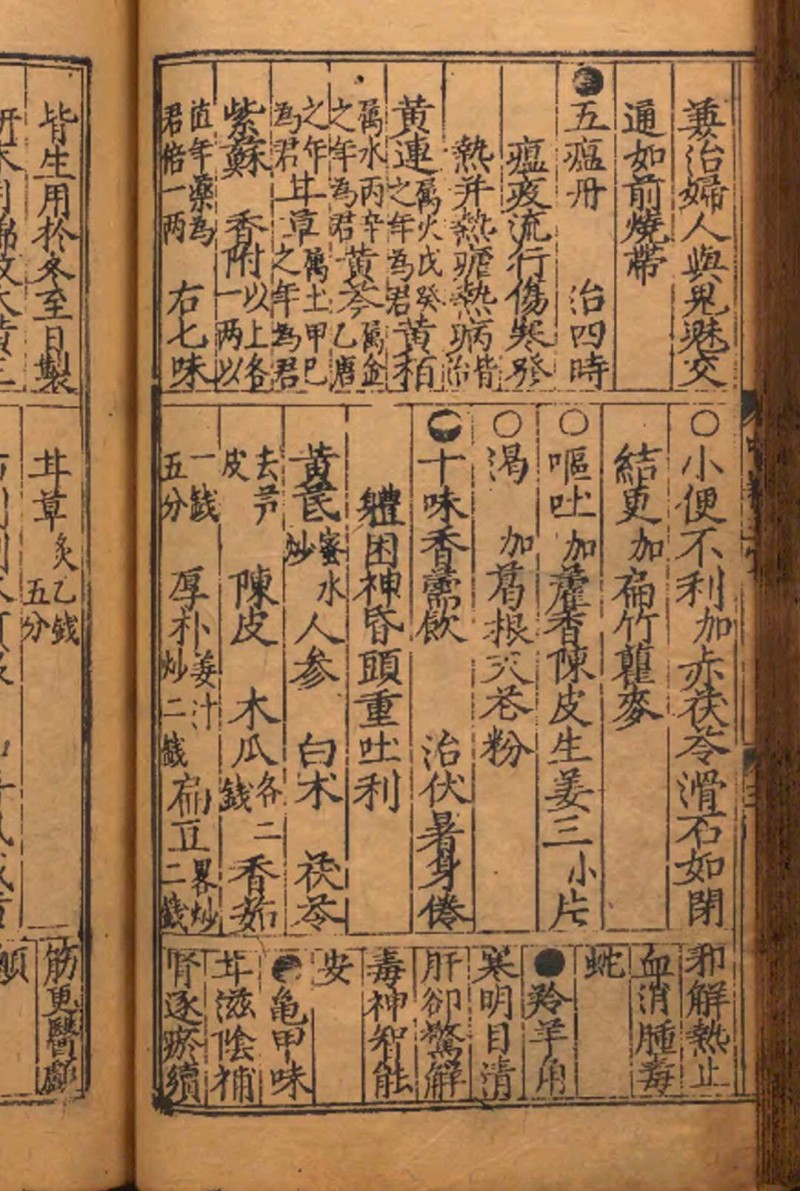 兼治婦人與鬼魅交
通如前燒帶
五瘟丹　治四時
瘟疫流行傷寒發
熱并熱瘧熱病皆治
黄連属火戊癸之年為君黄柏
属水丙辛之年為君黄芩属金乙庚
之年為君甘草属土甲巳之年為君
紫蘇　香附以上各一两以
值年藥為君倍一两　右七味
○小便不利加赤茯苓滑石如閉
結更加扁竹瞿麥
○嘔吐加藿香陳皮生姜三小片
○渴　加葛根天花粉
十味香薷飲　治伏暑身倦
軆困神昏頭重吐利
黄芪蜜水炒　人参　白术　茯苓
去芦皮　陳皮　木瓜各二錢　香茹
一錢五分　厚朴姜汁炒二錢　扁豆畧炒二錢
邪解熱止
血消腫毒
蛇
羚羊角
寒明目清
肝卻驚解
毒神智能
安
亀甲味
甘滋陰補
腎逐瘀續
皆生用於冬至日製
甘草炙乙錢五分
筋更醫顱